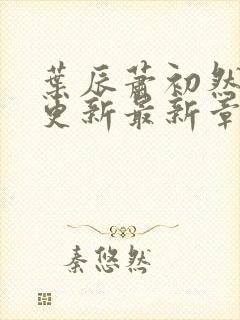 葉辰蕭初然
更新最新章
秦悠然